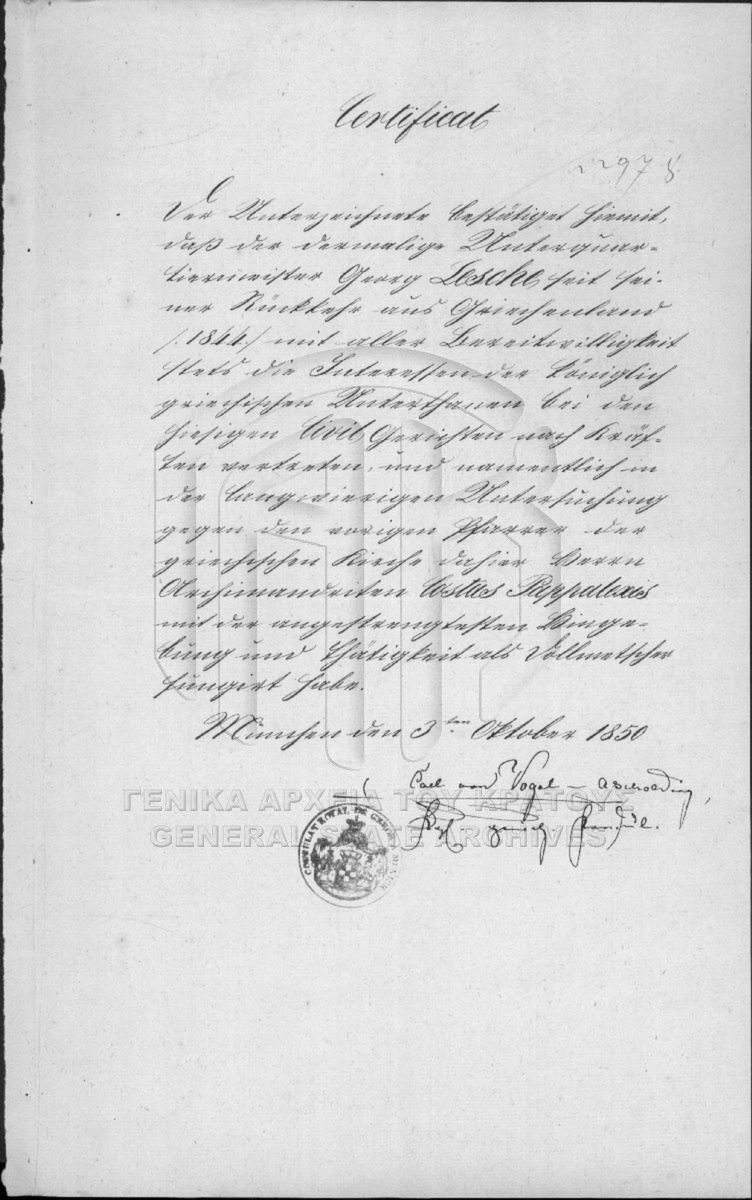 Certificat
2297 8
Der Unterzeichnete bestätiget hiemit,
daß der dermalige Unterquar-
tiermeister Georg Lesche seit sei-
ner Rückkehr aus Griechenland
/:1844:/ mit aller Bereitwilligkeit
stets die Interessen der königlich
griechischen Unterthanen bei den
hiesigen Civil Gerichten nach Kräf-
ten vertreten, und namentlich in
der langwierigen Untersuchung
gegen den vorigen Pfarrer der
griechischen Kirche dahier Herrn
Archimandriten Costas Pappalexis
mit der angestrengtesten Hinge-
bung und Thätigkeit als Dollmetscher
fungirt habe.
München den 3ten Oktober 1850
Carl von Vogel - Ascholding,
ΓΕΝΙΚΑ ΑΡΧΕΙΑ ΤΟΥ ΚΡΑΤΟΥΣ
GENERAL STATE ARCHIVES
CONSULAT ROYAL DE GRÈCE